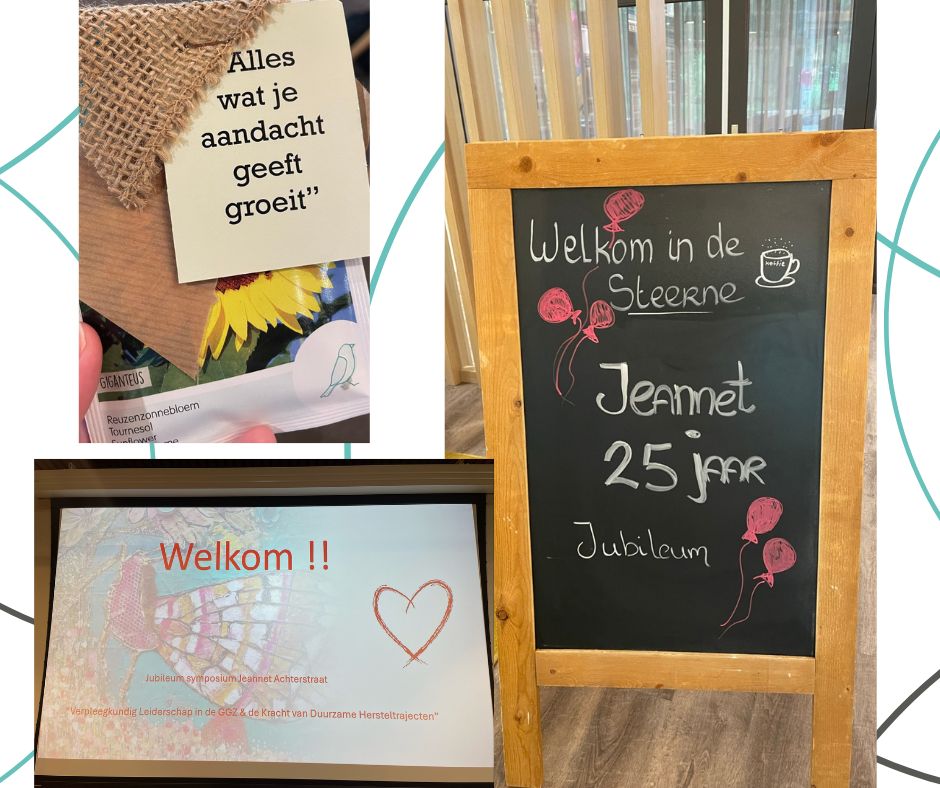 Alles
wat je
aandacht
geeft
groeit”
GIGANTEUS
Reuzenzonnebloem
Tournesol
Sunflower
Welkom !!
Jubileum symposium Jeannet Achterstraat
"Verpleegkundig Leiderschap in de GGZ & de Kracht van Duurzame Hersteltrajecten"
Welkom in de
Steerne
Jeannet
25 jaar
Jubileum